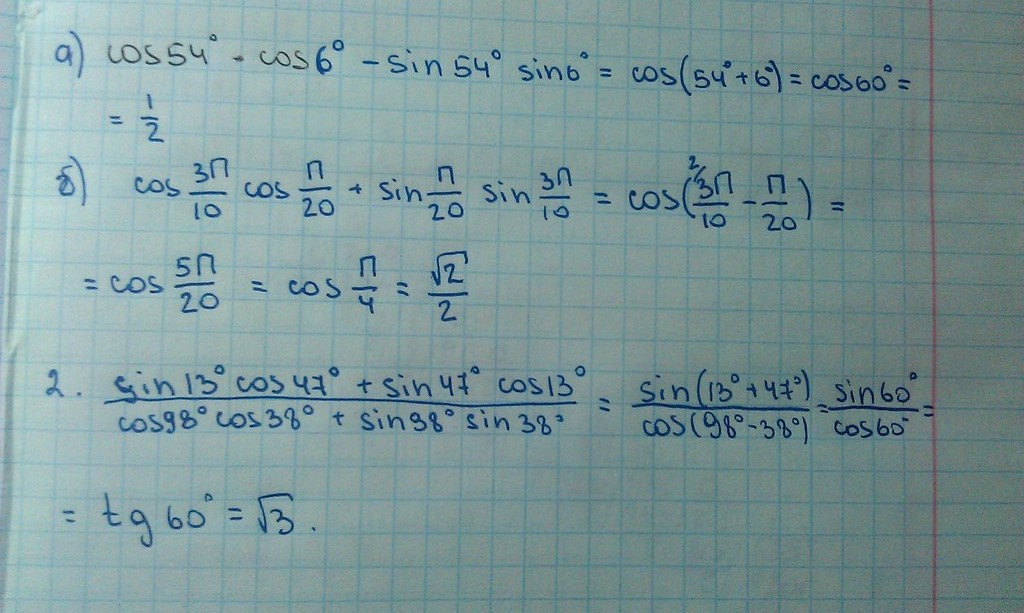 а) cos54° · cos6° - sin54° sin6° = cos(54°+6°) = cos60° =
= 1/2
б) cos 3π/10 cos π/20 + sin π/20 sin 3π/10 = cos(²⁄3π/10 - π/20) =
= cos 5π/20 = cos π/4 = √2/2
2. (sin13° cos47° + sin47° cos13°)/(cos98° cos38° + sin98° sin38°) = sin(13°+47°)/cos(98°-38°) = sin60°/cos60° =
= tg60° = √3.